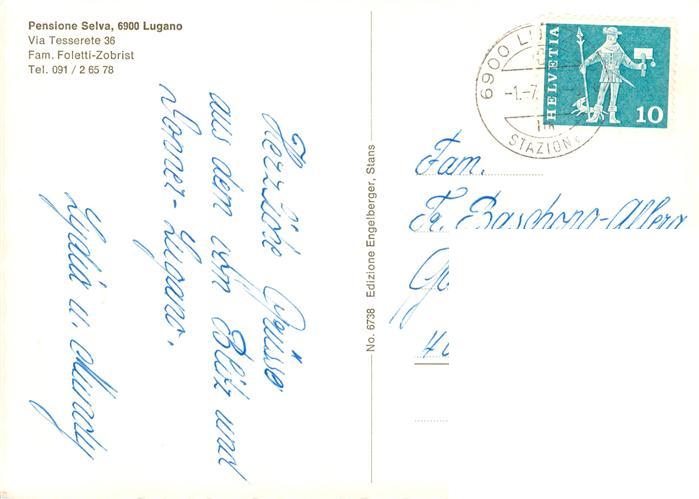 Pensione Selva, 6900 Lugano
Via Tesserete 36
Fam. Foletti-Zobrist
Tel. 091 / 2 65 78
Herzliche Grüsse
aus dem von Blitz und
Donner - Lugano.
Lydia u. Mundy
No. 6738 Edizione Engelberger, Stans
6900 LU
-1.-7.
STAZIONE
HELVETIA
10
Fam.
Fr.